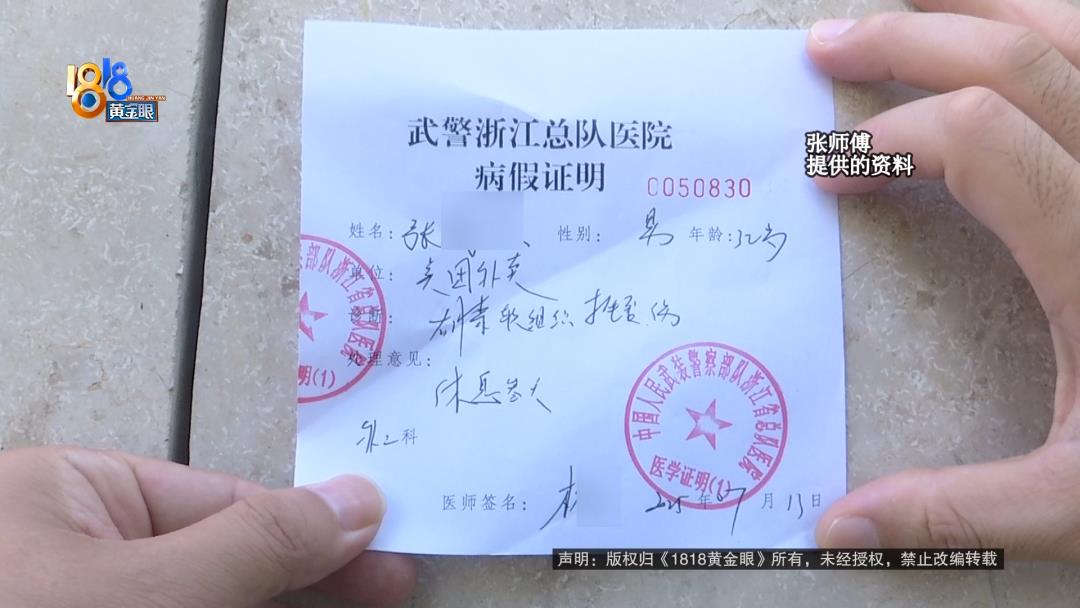 1818
HUANG JIN YAN
黄金眼
张师傅
提供的资料
武警浙江总队医院
病假证明
0050830
姓名: 张 性别: 男 年龄: 32岁
单位: 美团外卖
诊断: 右膝软组织挫伤
处理意见:
休息叁天
外二科
医师签名: 2025年07月13日
中国人民武装警察部队浙江省总队医院
医学证明(1)
部队浙江省总队医院
明(1)
声明：版权归《1818黄金眼》所有，未经授权，禁止改编转载